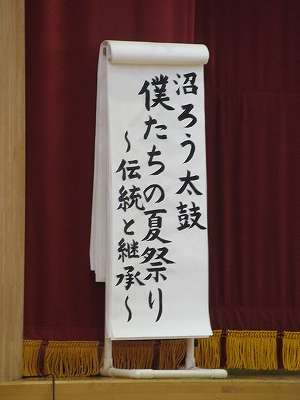 沼ろう太鼓
僕たちの夏祭り
～伝統と継承～